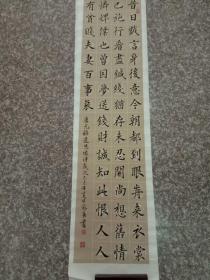 昔日戲言身後意今朝都到眼前来衣裳
已施行看盡針線猶存未忍開尚想舊情
憐婢僕也曾因夢送錢財誠知此恨人人
有貧賤夫妻百事哀